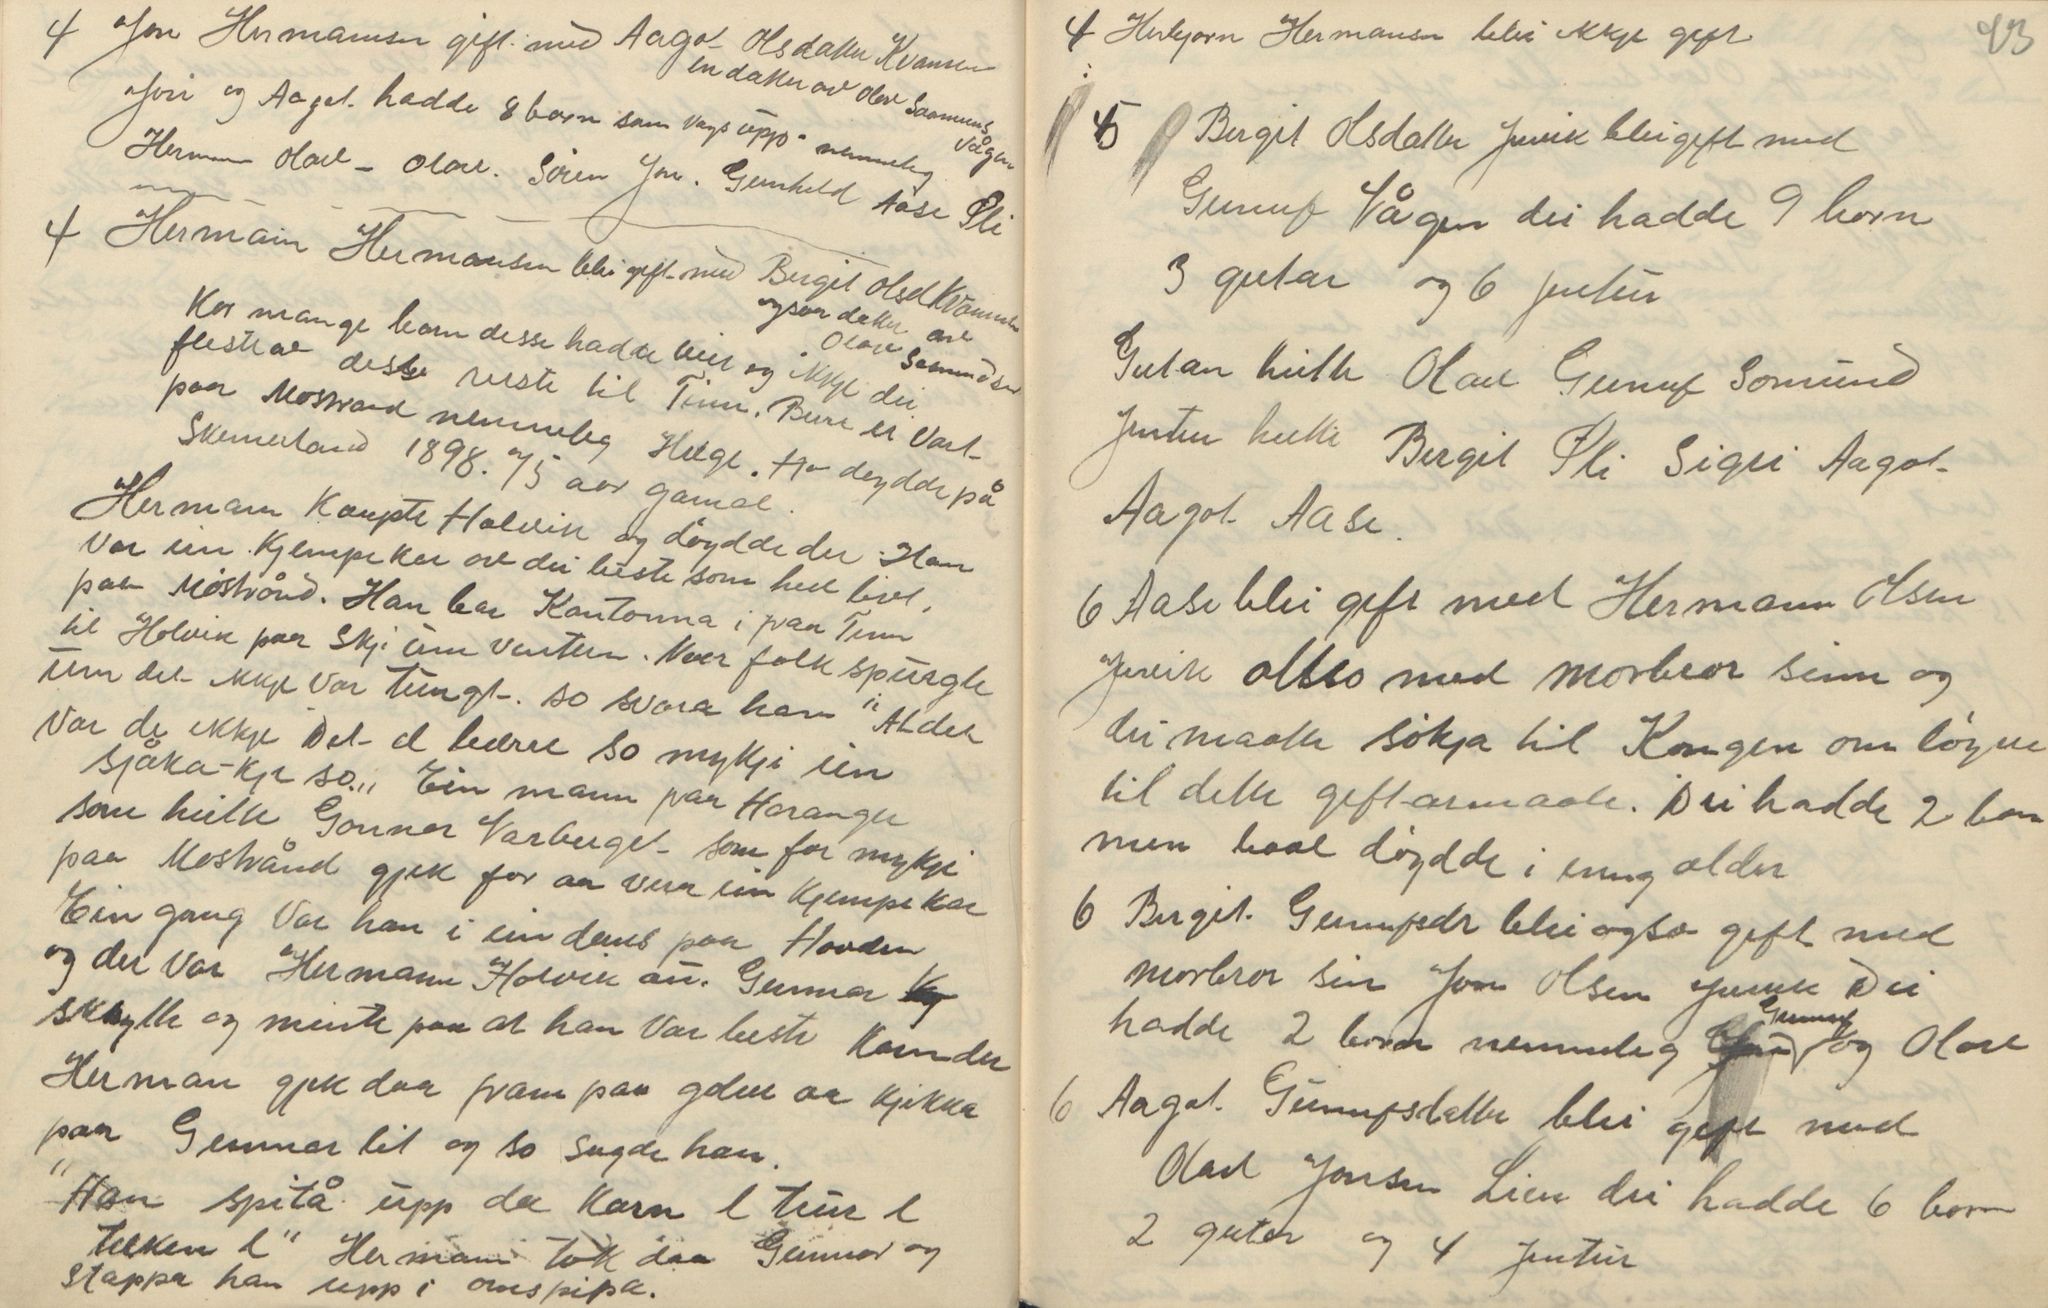 4 Jon Hermansen gift med Aagot Olsdatter Kvammen
en datter av Olav Saamunds
Vågen
Jon og Aagot hadde 8 born som vogs upp nemmeleg
Herman Olav - Olav. Søren Jon. Gunhild Aase Sli
4 Hermain Hermansen blei gift med Bergit Olsd Kvammen
ogsaa datter av
Olav Somundsen
Kor mange born desse hadde veit eg ikkje dei
fleste av desse reiste til Tinn. Bare ei vart
paa Mosstrand nemmeleg Helge. Ho døydde på
Skinnerland 1898. 75 aar gamal.
Hermann kaupte Holvik og døydde der. Han
var ein kjempekar av dei beste som hev livt,
paa Møsstrånd. Han bar Korntonna i fraa Tinn
til Holvik paa Skji um vinteren. Naar folk spurgte
um det ikkje var tungt. so svara han "At det
var de ikkje Det æ berre so mykji ein
sjåka-kje so." Ein mann fraa Haranger
som heitte Gonnar Varberget som for mykji
paa Mosstrånd gjek for aa vera ein kjempekar
Ein gang var han i ein dans paa Hovden
og der var Hermann Holvik au. Gunnar
skrytte og meinte paa at han var beste karn der
Herman gjek daa fram paa golve aa kjikka
paa Gunnar lit og so sagde han.
"Han spitå upp da karn l tiur l
tecken l" Hermann tok daa Gunnar og
stappa han upp i omspipa.
4 Herbjorn Hermansen blei ikkje gift
43
5 Bergit Olsdatter Juvik blei gift med
Gunuf Vågen dei hadde 9 born
3 gutar og 6 jentur
Gutan heitte Olav Gunuf Somund
Jentur heitte Bergit Sli Sigri Aagot
Aagot Aase.
6 Aase blei gift med Hermann Olsen
Juvik altso med morbror sinn og
dei maatte søkja til Kongen om løyve
til dette giftarmaale. Dei hadde 2 born
men baae døydde i unng alder
6 Bergit Gunufsdr blei ogso gift med
morbror sin Jon Olsen Juvik Dei
hadde 2 born nemmeleg Gunuf og Olav
6 Aagot Gunufsdatter blei gift med
Olav Jonsen Lien dei hadde 6 born
2 guter og 4 jentur